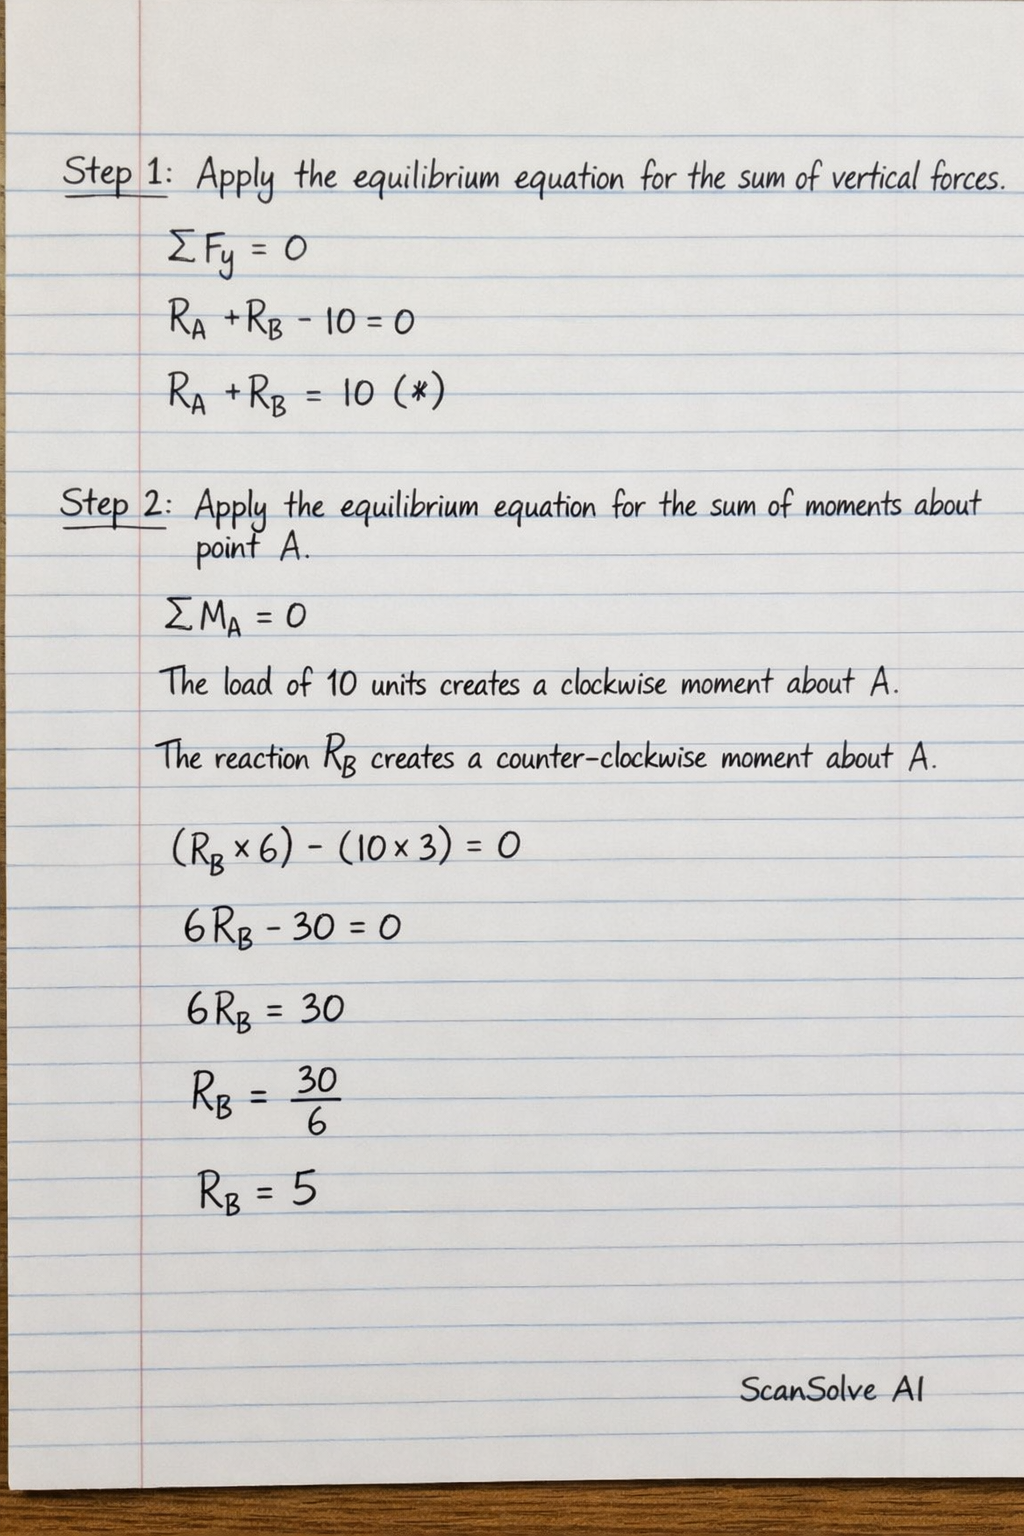 Step 1: Apply the equilibrium equation for the sum of vertical forces.
ΣFy = 0
RA + RB - 10 = 0
RA + RB = 10 (*)
Step 2: Apply the equilibrium equation for the sum of moments about
point A.
ΣMA = 0
The load of 10 units creates a clockwise moment about A.
The reaction RB creates a counter-clockwise moment about A.
(RB × 6) - (10 × 3) = 0
6RB - 30 = 0
6RB = 30
RB = 30/6
RB = 5
ScanSolve AI